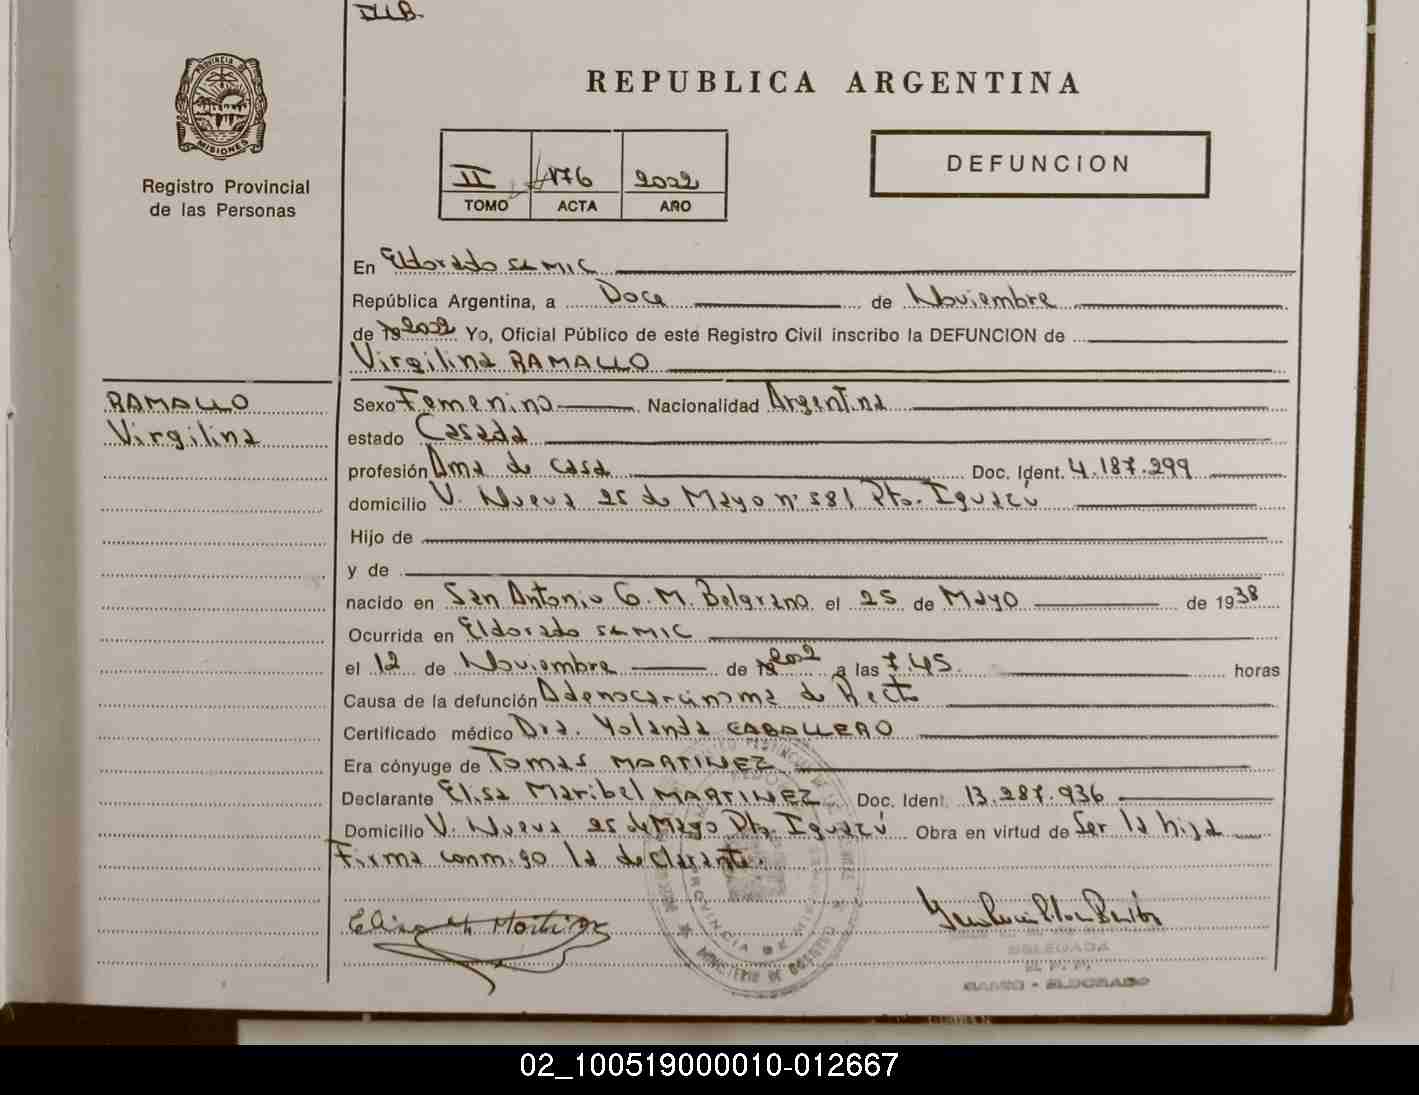 REPUBLICA ARGENTINA
PROVINCIA DE
MISIONES
Registro Provincial
de las Personas
II 176 2002
TOMO ACTA AÑO
DEFUNCION
En Eldorado
República Argentina, a Doce de Noviembre
de 19 2002 Yo, Oficial Público de este Registro Civil inscribo la DEFUNCION de
Virgilina RAMALLO
RAMALLO
Virgilina
Sexo Femenino Nacionalidad Argentina
estado Casada
profesión Ama de casa Doc. Ident. 4.187.299
domicilio V. Nueva 25 de Mayo nº 581 Pto. Iguazú
Hijo de
y de
nacido en San Antonio G. M. Belgrano el 25 de Mayo de 1938
Ocurrida en Eldorado
el 12 de Noviembre de 19 2002 a las 7.45 horas
Causa de la defunción Adenocarcinoma de Recto
Certificado médico Dra. Yolanda CABALLERO
Era cónyuge de Tomas MARTINEZ
Declarante Elisa Maribel MARTINEZ Doc. Ident. 13.287.936
Domicilio V. Nueva 25 de Mayo Pto. Iguazú Obra en virtud de Ser la hija
Firma conmigo la declarante.
PROVINCIA DE MISIONES
MINISTERIO DE GOBIERNO
DELEGADA
R. P. P.
ELDORADO
02_100519000010-012667